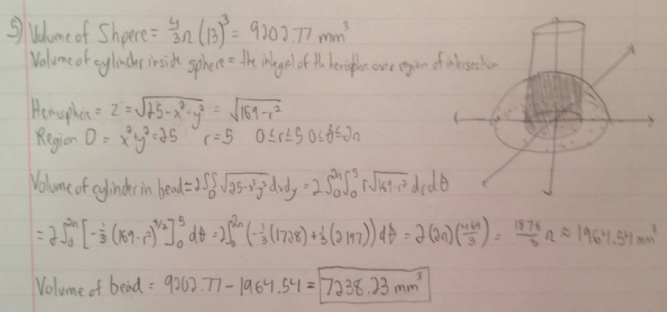 5) Volume of Shpere = 4/3 π (13)³ = 9202.77 mm³
Volume of cylinder inside sphere = the integral of the hemisphere over region of intersection
Hemisphere = z = √(25-x²-y²) = √(169-r²)
Region D = x²+y²=25 r=5 0≤r≤5 0≤θ≤2π
Volume of cylinder in bead = 2∫∫_D √(25-x²-y²) dxdy = 2∫₀^2π ∫₀^5 r√(169-r²) dr dθ
= 2∫₀^2π [-1/3 (169-r²)^3/2]₀^5 dθ = 2∫₀^2π (-1/3 (1728) + 1/3 (2197)) dθ = 2(2π)(469/3) = 1876/3 π ≈ 1964.54 mm³
Volume of bead = 9202.77 - 1964.54 = 7238.23 mm³